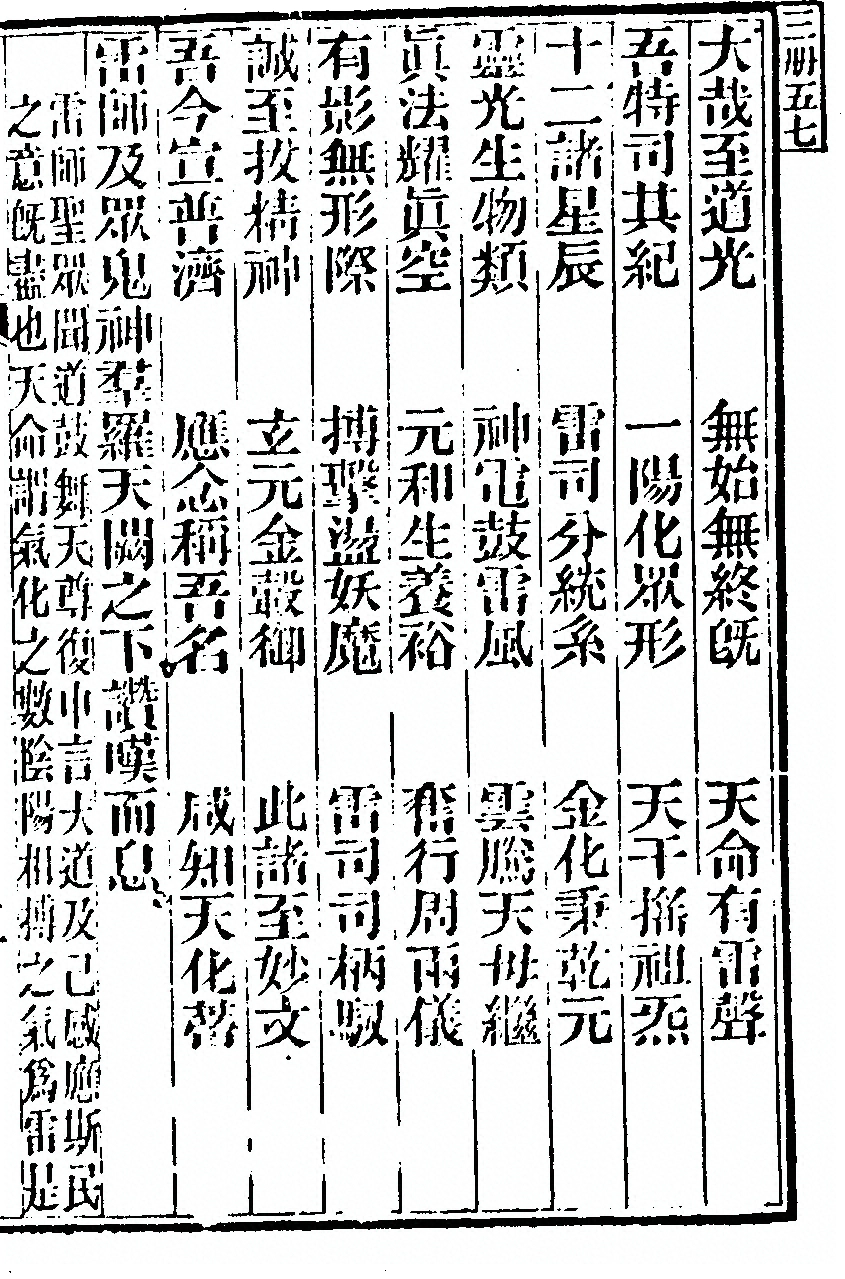 三册五七
大哉至道光　無始無終旣　天命有雷聲
吾特司其紀　一陽化眾形　天干搖祖炁
十二諸星辰　雷司分統系　金化秉乾元
靈光生物類　神電鼓雷風　雲騰天毋繼
眞法耀眞空　元和生養裕　奮行周兩儀
有影無形際　搏擊盪妖魔　雷司司柄馭
誠至扳精神　玄元金轂御　此諸至妙文
吾今宣普濟　應念稱吾名　咸知天化
雷師及眾鬼神羣羅天闕之下讚嘆而息
雷師聖眾聞道鼓舞天尊復申言大道及己感應斯民
之意旣盡也天命謂氣化之數陰陽相搏之氣爲雷是